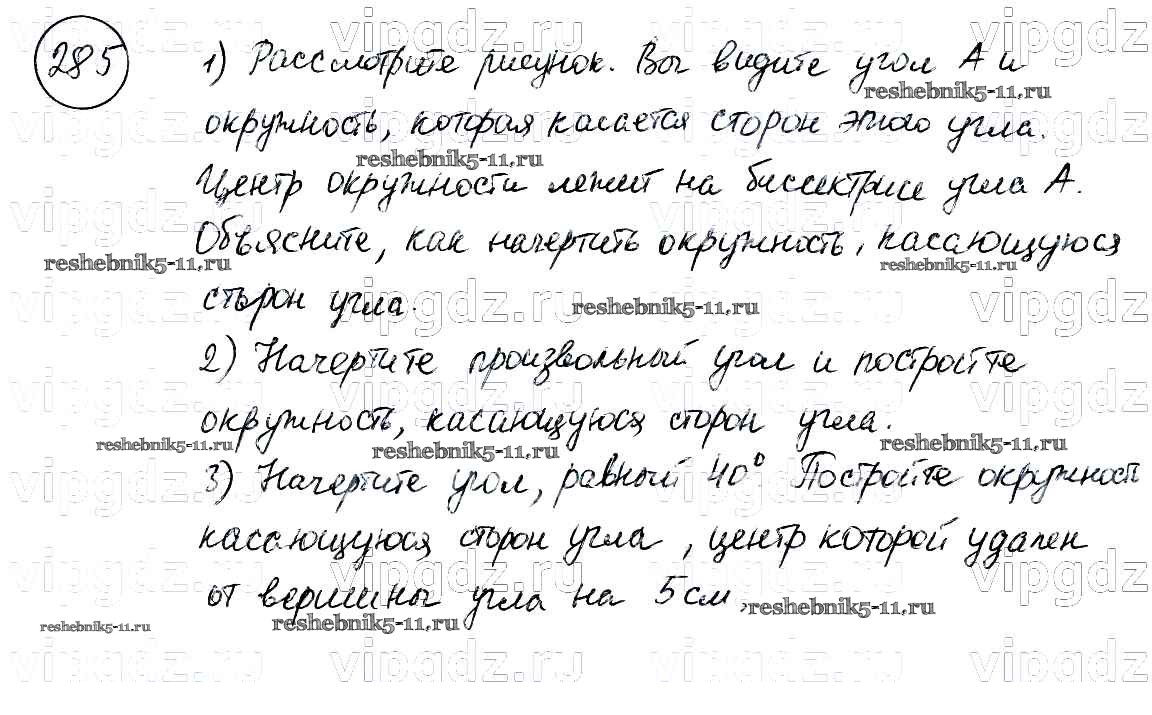 285
1) Рассмотрите рисунок. Вы видите угол А и
окружность, которая касается сторон этого угла.
Центр окружности лежит на биссектрисе угла А.
Объясните, как начертить окружность, касающуюся
сторон угла.
2) Начертите произвольный угол и постройте
окружность, касающуюся сторон угла.
3) Начертите угол, равный 40° Постройте окружность
касающуюся сторон угла, центр которой удален
от вершины угла на 5 см.
vipgdz.ru
reshebnik5-11.ru